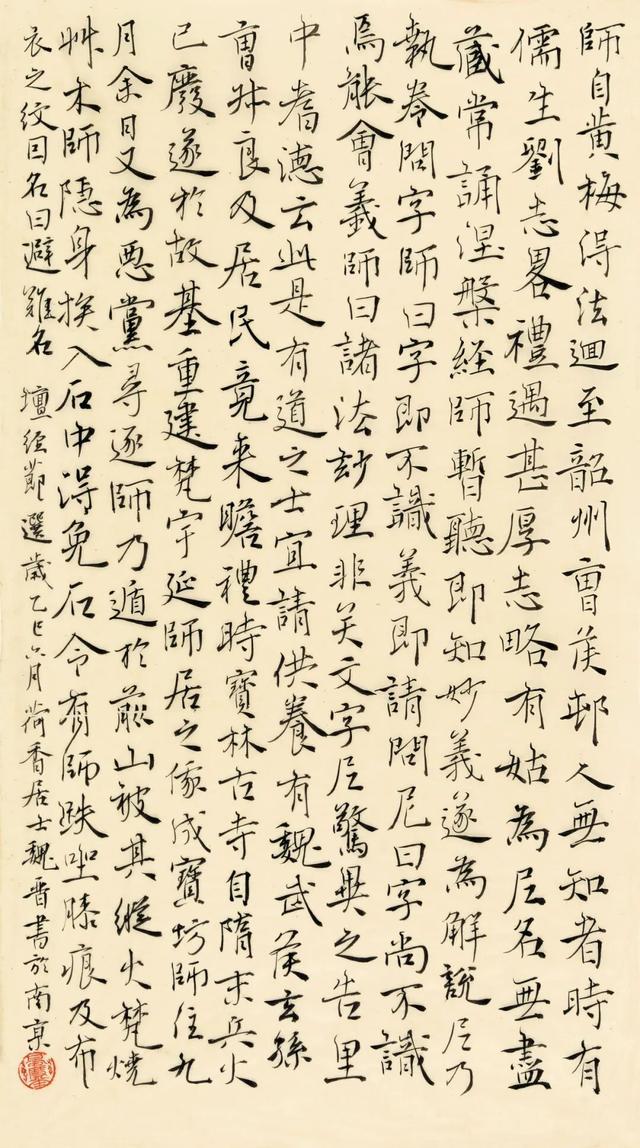 師自黄梅得法迴至韶州曹侯邨人無知者時有
儒生劉志畧禮遇甚厚志略有姑為尼名無盡
藏常誦涅槃経師暫聽即知妙義遂為解說尼乃
執卷問字師曰字即不識義即請問尼曰字尚不識
焉能會義師曰諸法妙理非关文字尼驚異之告里
中耆德云此是有道之士宜請供養有魏武侯玄孫
曹叔良及居民竟来瞻禮時寶林古寺自隋末兵火
已廢遂於故基重建梵宇延師居之俄成寶坊師住九
月余日又為惡黨尋逐師乃遁於前山被其縱火焚燒
艸木師隱身挨入石中得免石今有師趺坐膝痕及布
衣之紋因名曰避難石 壇經節選歲乙巳六月荷香居士魏晋書於南京